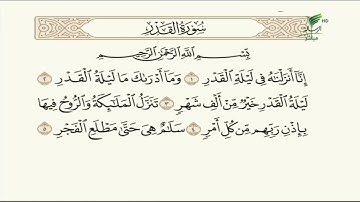 سُورَةُ القَدْرِ
بِسْمِ اللَّهِ الرَّحْمَٰنِ الرَّحِيمِ
إِنَّا أَنزَلْنَٰهُ فِى لَيْلَةِ الْقَدْرِ ١ وَمَا أَدْرَىٰكَ مَا لَيْلَةُ الْقَدْرِ ٢
لَيْلَةُ الْقَدْرِ خَيْرٌ مِّنْ أَلْفِ شَهْرٍ ٣ تَنَزَّلُ الْمَلَٰٓئِكَةُ وَالرُّوحُ فِيهَا
بِإِذْنِ رَبِّهِم مِّن كُلِّ أَمْرٍ ٤ سَلَٰمٌ هِىَ حَتَّىٰ مَطْلَعِ الْفَجْرِ ٥
HD